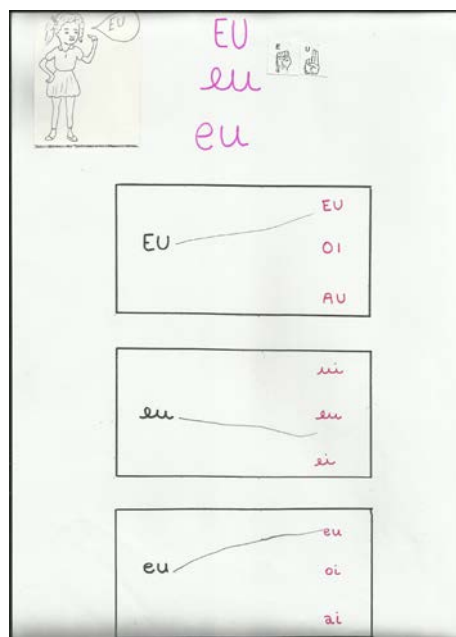 EU
EU
E U
eu
eu
EU
EU
OI
AU
ui
eu
eu
ei
eu
eu
oi
ai